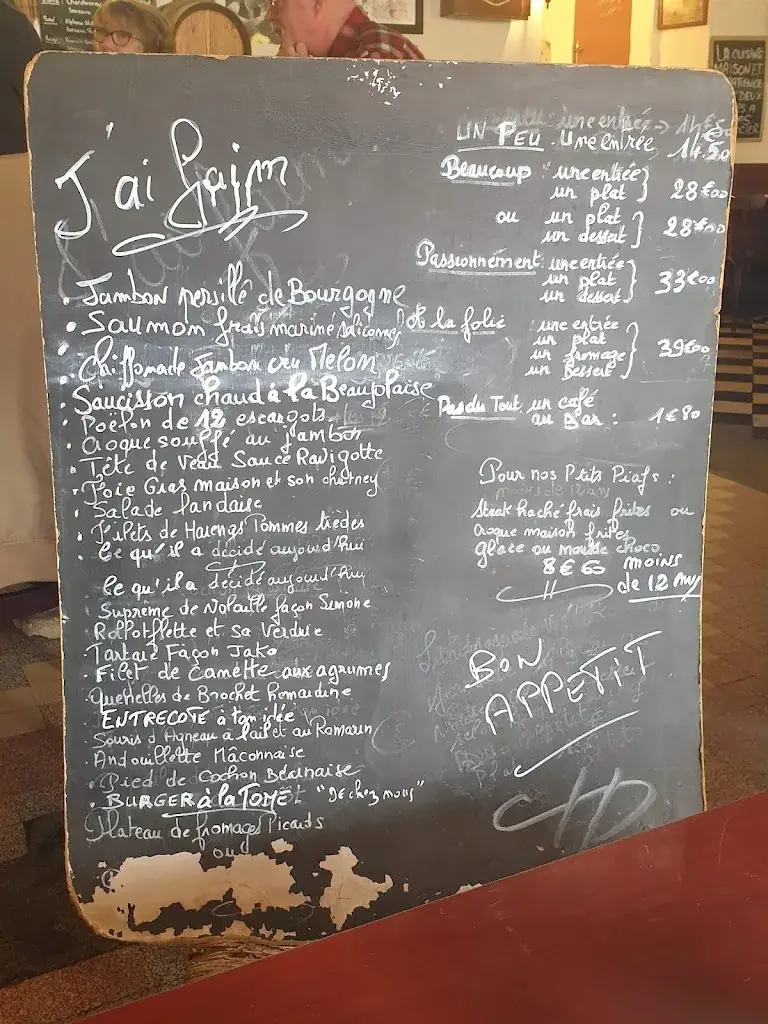 J'ai faim
. Jambon persillé de Bourgogne
. Saumon frais mariné
. Chiffonnade Jambon cru Melon
. Saucisson chaud à la Beaujolaise
. Poêlon de 12 escargots
. Croque soufflé au jambon
. Tête de Veau Sauce Ravigotte
. Foie Gras maison et son chutney
. Salade Landaise
. Filets de Harengs Pommes tièdes
. Ce qu'il a décidé aujourd'hui
Ce qu'il a décidé aujourd'hui
. Suprême de Volaille façon Simone
. Rollotflette et sa Verdure
. Tartare Façon Jako
. Filet de Canette aux agrumes
. Quenelles de Brochet homardine
. ENTRECOTE à ton idée
. Souris d'Agneau à l'ail et au Romarin
. Andouillette Mâconnaise
. Pied de Cochon Béarnaise
. BURGER à la TOME "De chez nous"
Plateau de fromages Picards
ou
UN PEU : une entrée 14.50
Beaucoup : une entrée
un plat } 28€00
ou un plat
un dessert } 28€00
Passionnément : une entrée
un plat
un dessert } 33€00
et la folie une entrée
un plat
un fromage
un dessert } 39€00
Pas du Tout un café
au Bar : 1€80
Pour nos P'tits Piafs :
moins de 12 ans
Steak haché frais frites ou
Croque maison frites
glace ou mousse choco
8€60 moins
de 12 Ans
BON
APPETIT
LA CUISINE
MAISON ET